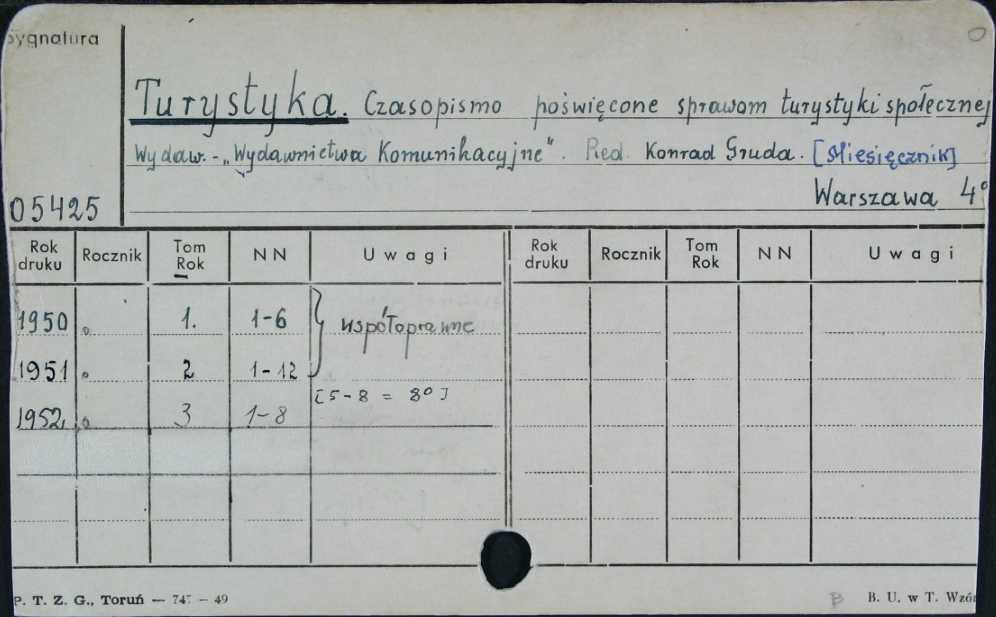 Sygnatura
Turystyka. Czasopismo poświęcone sprawom turystyki społecznej
Wydaw. - „Wydawnictwa Komunikacyjne". Red. Konrad Gruda. [Miesięcznik]
05425 Warszawa 4°
Rok druku Rocznik Tom Rok NN Uwagi Rok druku Rocznik Tom Rok NN Uwagi
1950 1. 1-6 współoprawne
1951 2 1-12
[5-8 = 8°]
1952 3 1-8
P. T. Z. G., Toruń — 747 — 49 B. U. w T. Wzór